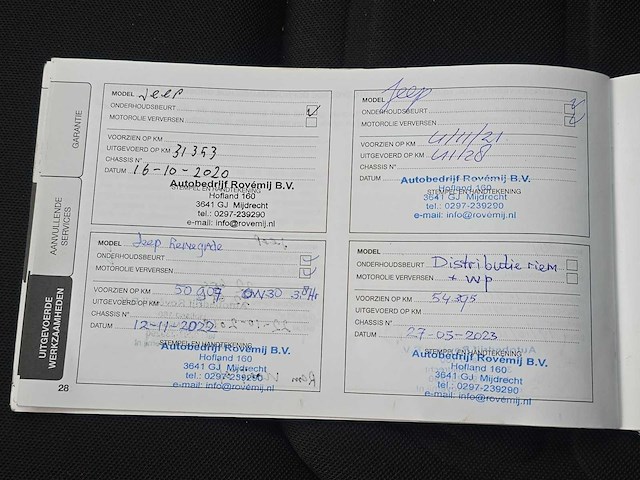 GARANTIE
AANVULLENDE
SERVICES
UITGEVOERDE
WERKZAAMHEDEN
28
MODEL Jeep
ONDERHOUDSBEURT
MOTOROLIE VERVERSEN
VOORZIEN OP KM
UITGEVOERD OP KM 31353
CHASSIS N°
DATUM 16-10-2020
STEMPEL EN HANDTEKENING
Autobedrijf Rovémij B.V.
Hofland 160
3641 GJ Mijdrecht
tel.: 0297-239290
e-mail: info@rovemij.nl
MODEL Jeep
ONDERHOUDSBEURT
MOTOROLIE VERVERSEN
VOORZIEN OP KM
UITGEVOERD OP KM
CHASSIS N°
DATUM
STEMPEL EN HANDTEKENING
Autobedrijf Rovémij B.V.
Hofland 160
3641 GJ Mijdrecht
tel.: 0297-239290
e-mail: info@rovemij.nl
MODEL Jeep Renegade
ONDERHOUDSBEURT
MOTOROLIE VERVERSEN
VOORZIEN OP KM 50907 0W30
UITGEVOERD OP KM
CHASSIS N°
DATUM 12-11-2022
STEMPEL EN HANDTEKENING
Autobedrijf Rovémij B.V.
Hofland 160
3641 GJ Mijdrecht
tel.: 0297-239290
e-mail: info@rovemij.nl
MODEL
ONDERHOUDSBEURT Distributie riem
MOTOROLIE VERVERSEN + WP
VOORZIEN OP KM 54395
UITGEVOERD OP KM
CHASSIS N°
DATUM 27-05-2023
STEMPEL EN HANDTEKENING
Autobedrijf Rovémij B.V.
Hofland 160
3641 GJ Mijdrecht
tel.: 0297-239290
e-mail: info@rovemij.nl